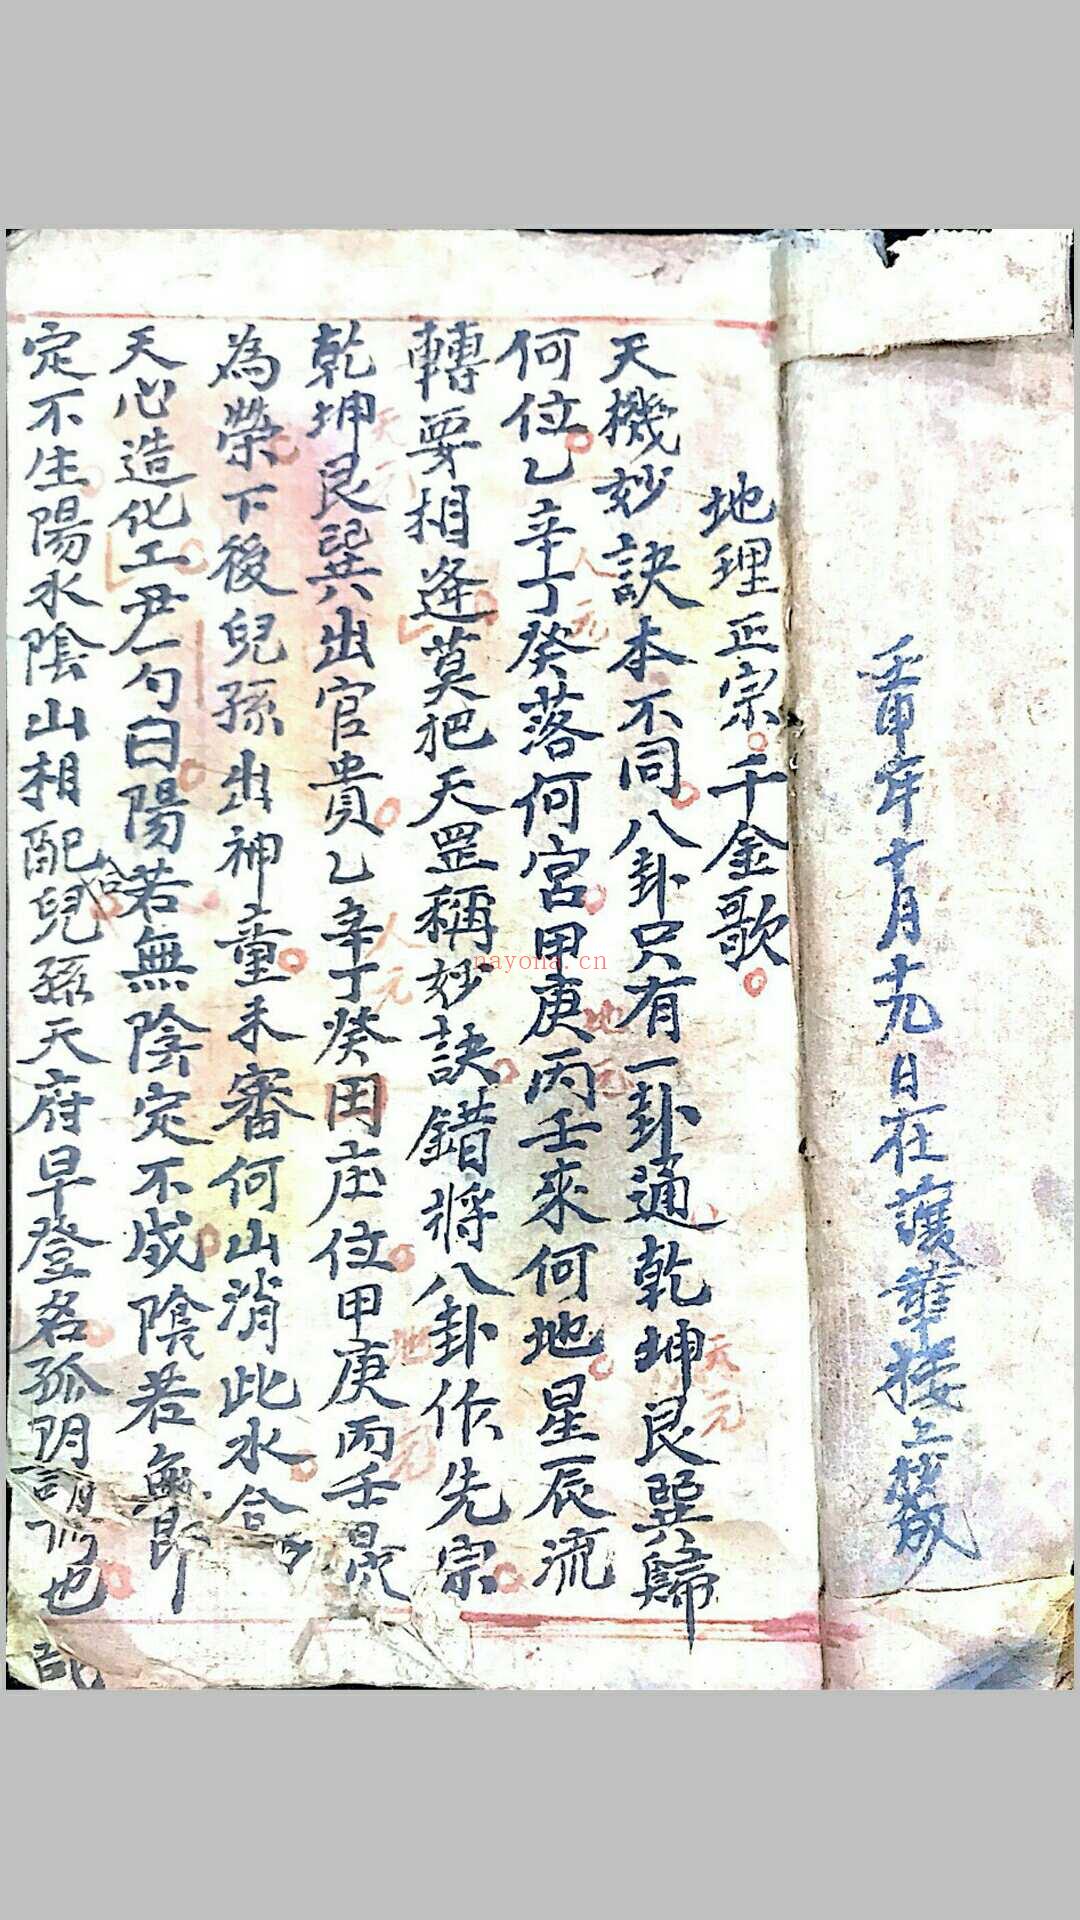 壬申年十月十九日在護華接上
地理正宗千金歌
天機妙訣本不同八卦只有一卦通乾坤艮巽歸
何位乙辛丁癸落何宮甲庚丙壬來何地星辰流
轉要相逢莫把天罡稱妙訣錯將八卦作先宗
乾坤艮巽出官貴乙辛丁癸田庄位甲庚丙壬最
為榮下後兒孫出神童未審何山消此水合
天心造化工尹一勺曰陽若無陰定不成陰若無即
定不生陽水陰山相配合兒孫天府早登名孤陰謂也
天元
人元
地元
天元
人元
地元
nayona.cn